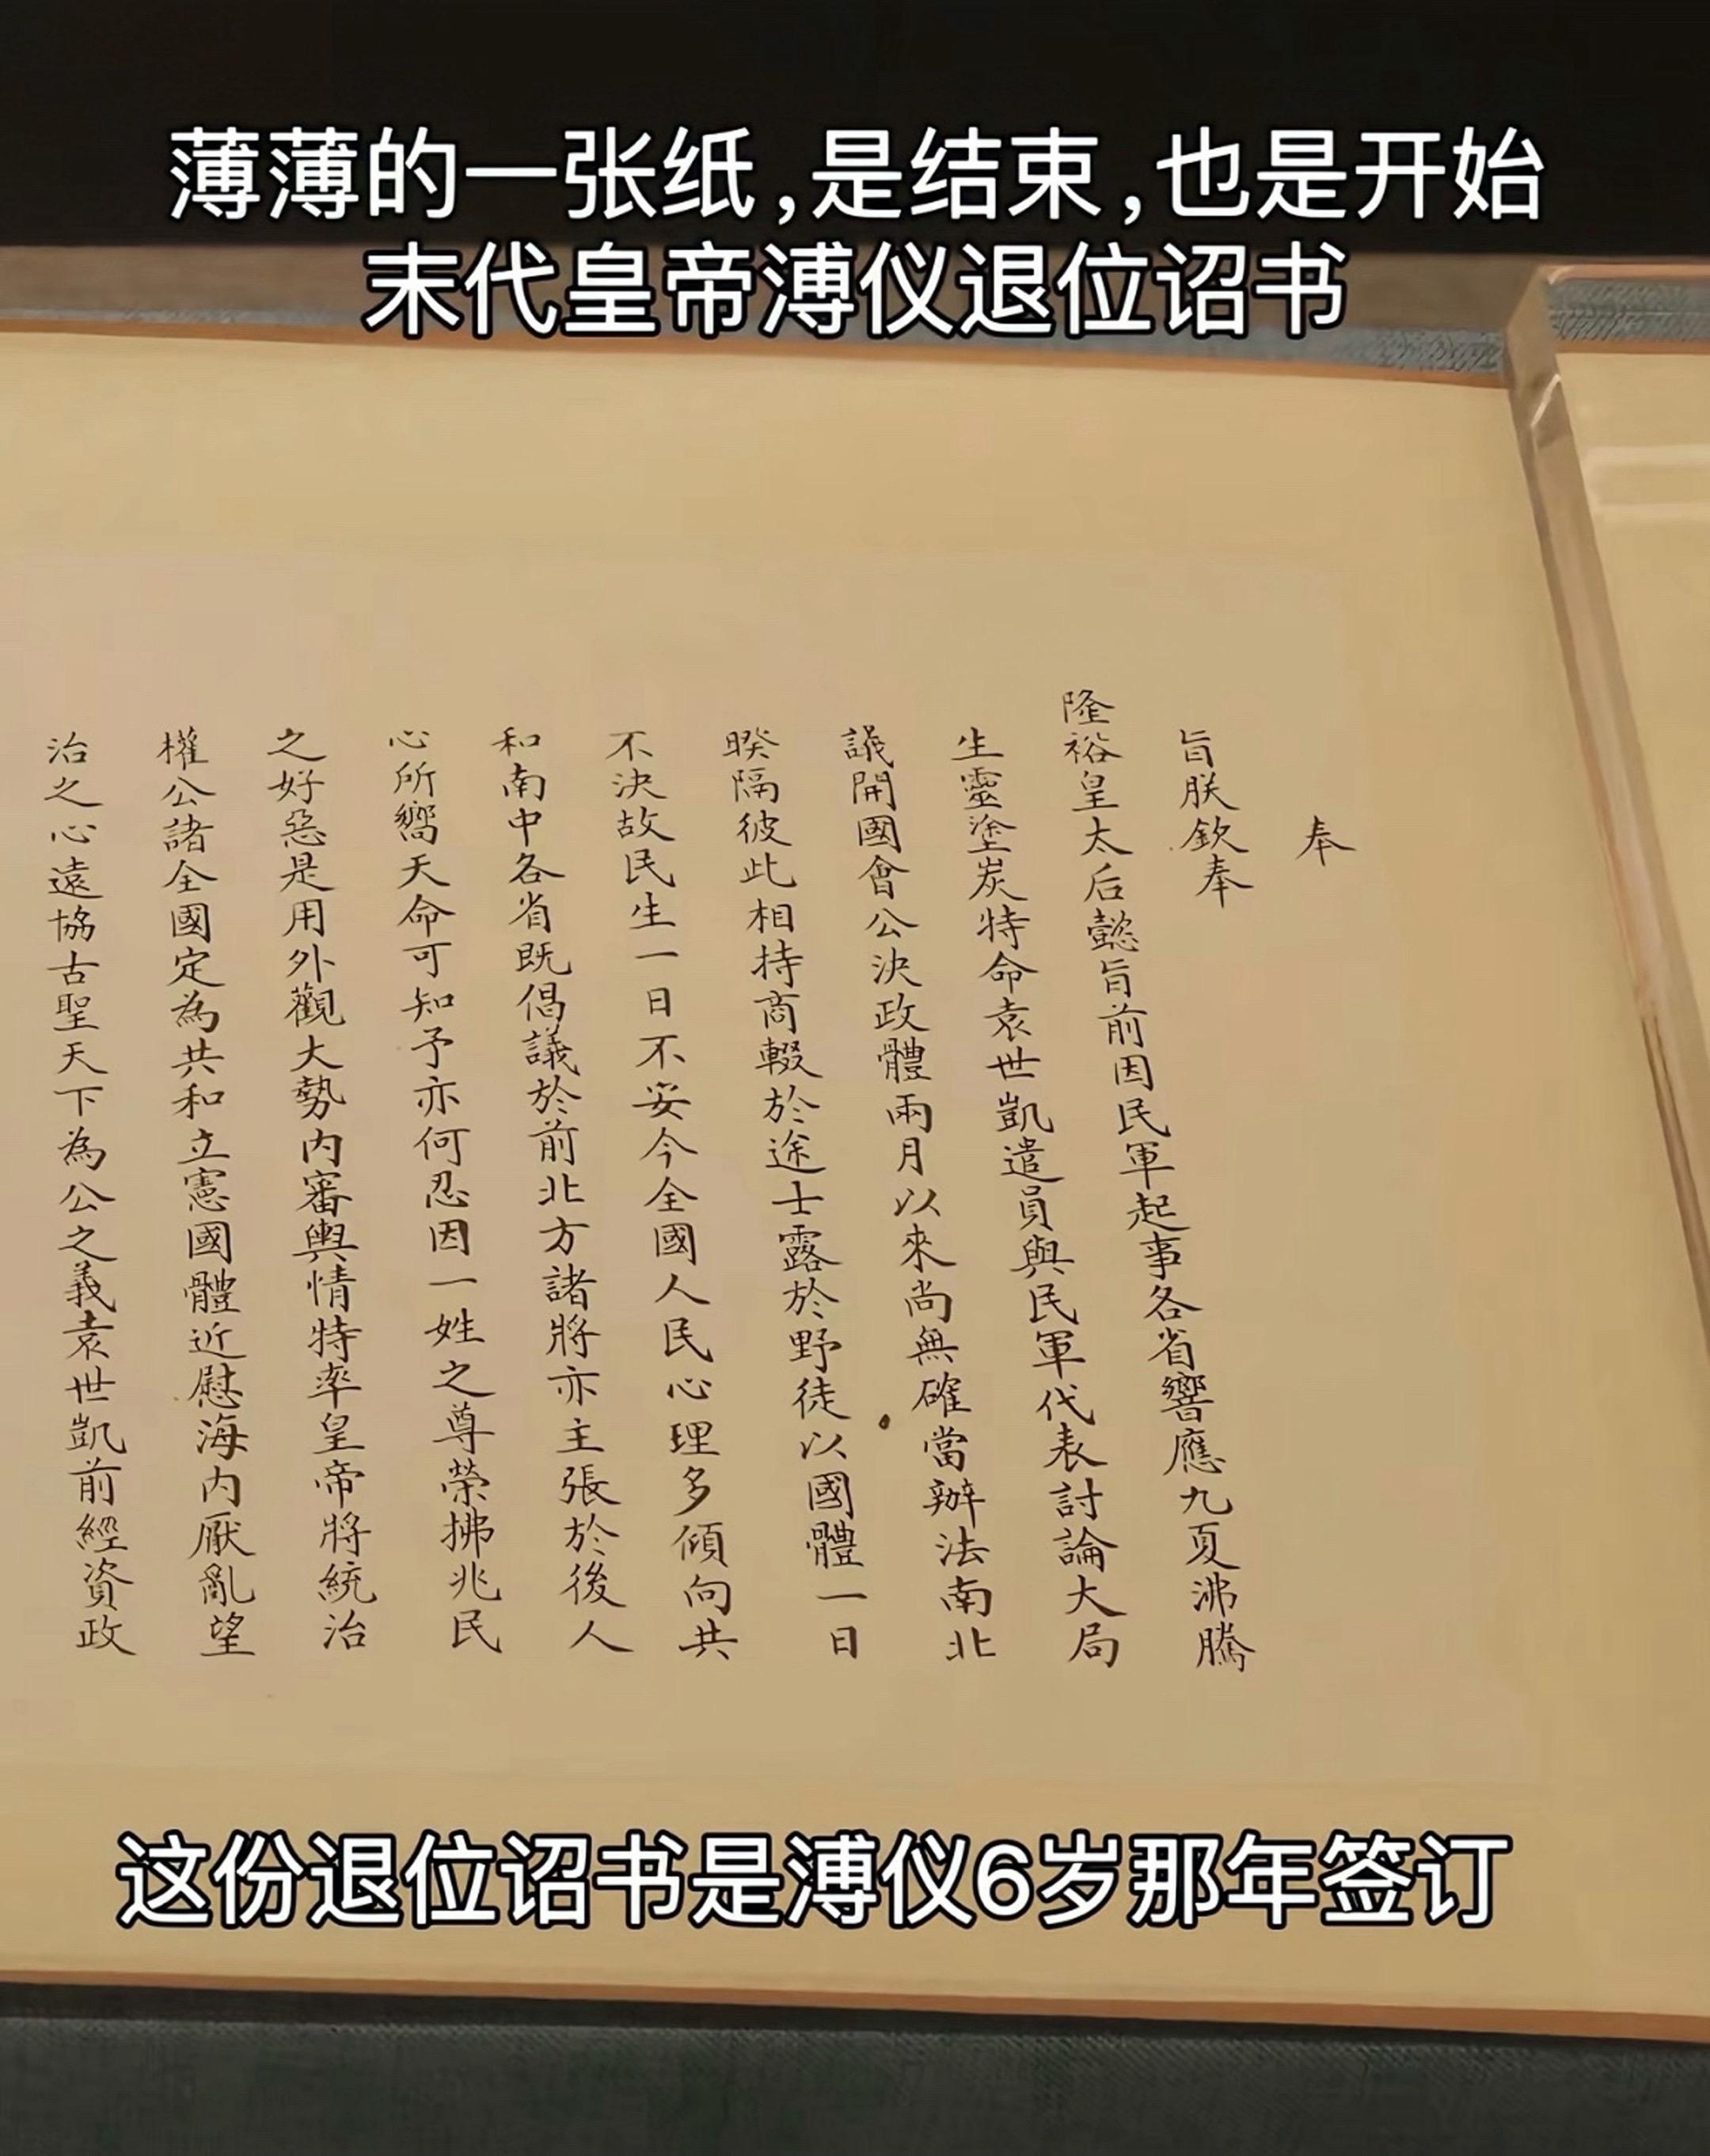 薄薄的一张纸,是结束,也是开始
末代皇帝溥仪退位诏书
奉
旨朕欽奉
隆裕皇太后懿旨前因民軍起事各省響應九夏沸騰
生靈塗炭特命袁世凱遣員與民軍代表討論大局
議開國會公決政體兩月以來尚無確當辦法南北
暌隔彼此相持商輟於途士露於野徒以國體一日
不決故民生一日不安今全國人民心理多傾向共
和南中各省既倡議於前北方諸將亦主張於後人
心所嚮天命可知予亦何忍因一姓之尊榮拂兆民
之好惡是用外觀大勢內審輿情特率皇帝將統治
權公諸全國定為共和立憲國體近慰海內厭亂望
治之心遠協古聖天下為公之義袁世凱前經資政
这份退位诏书是溥仪6岁那年签订